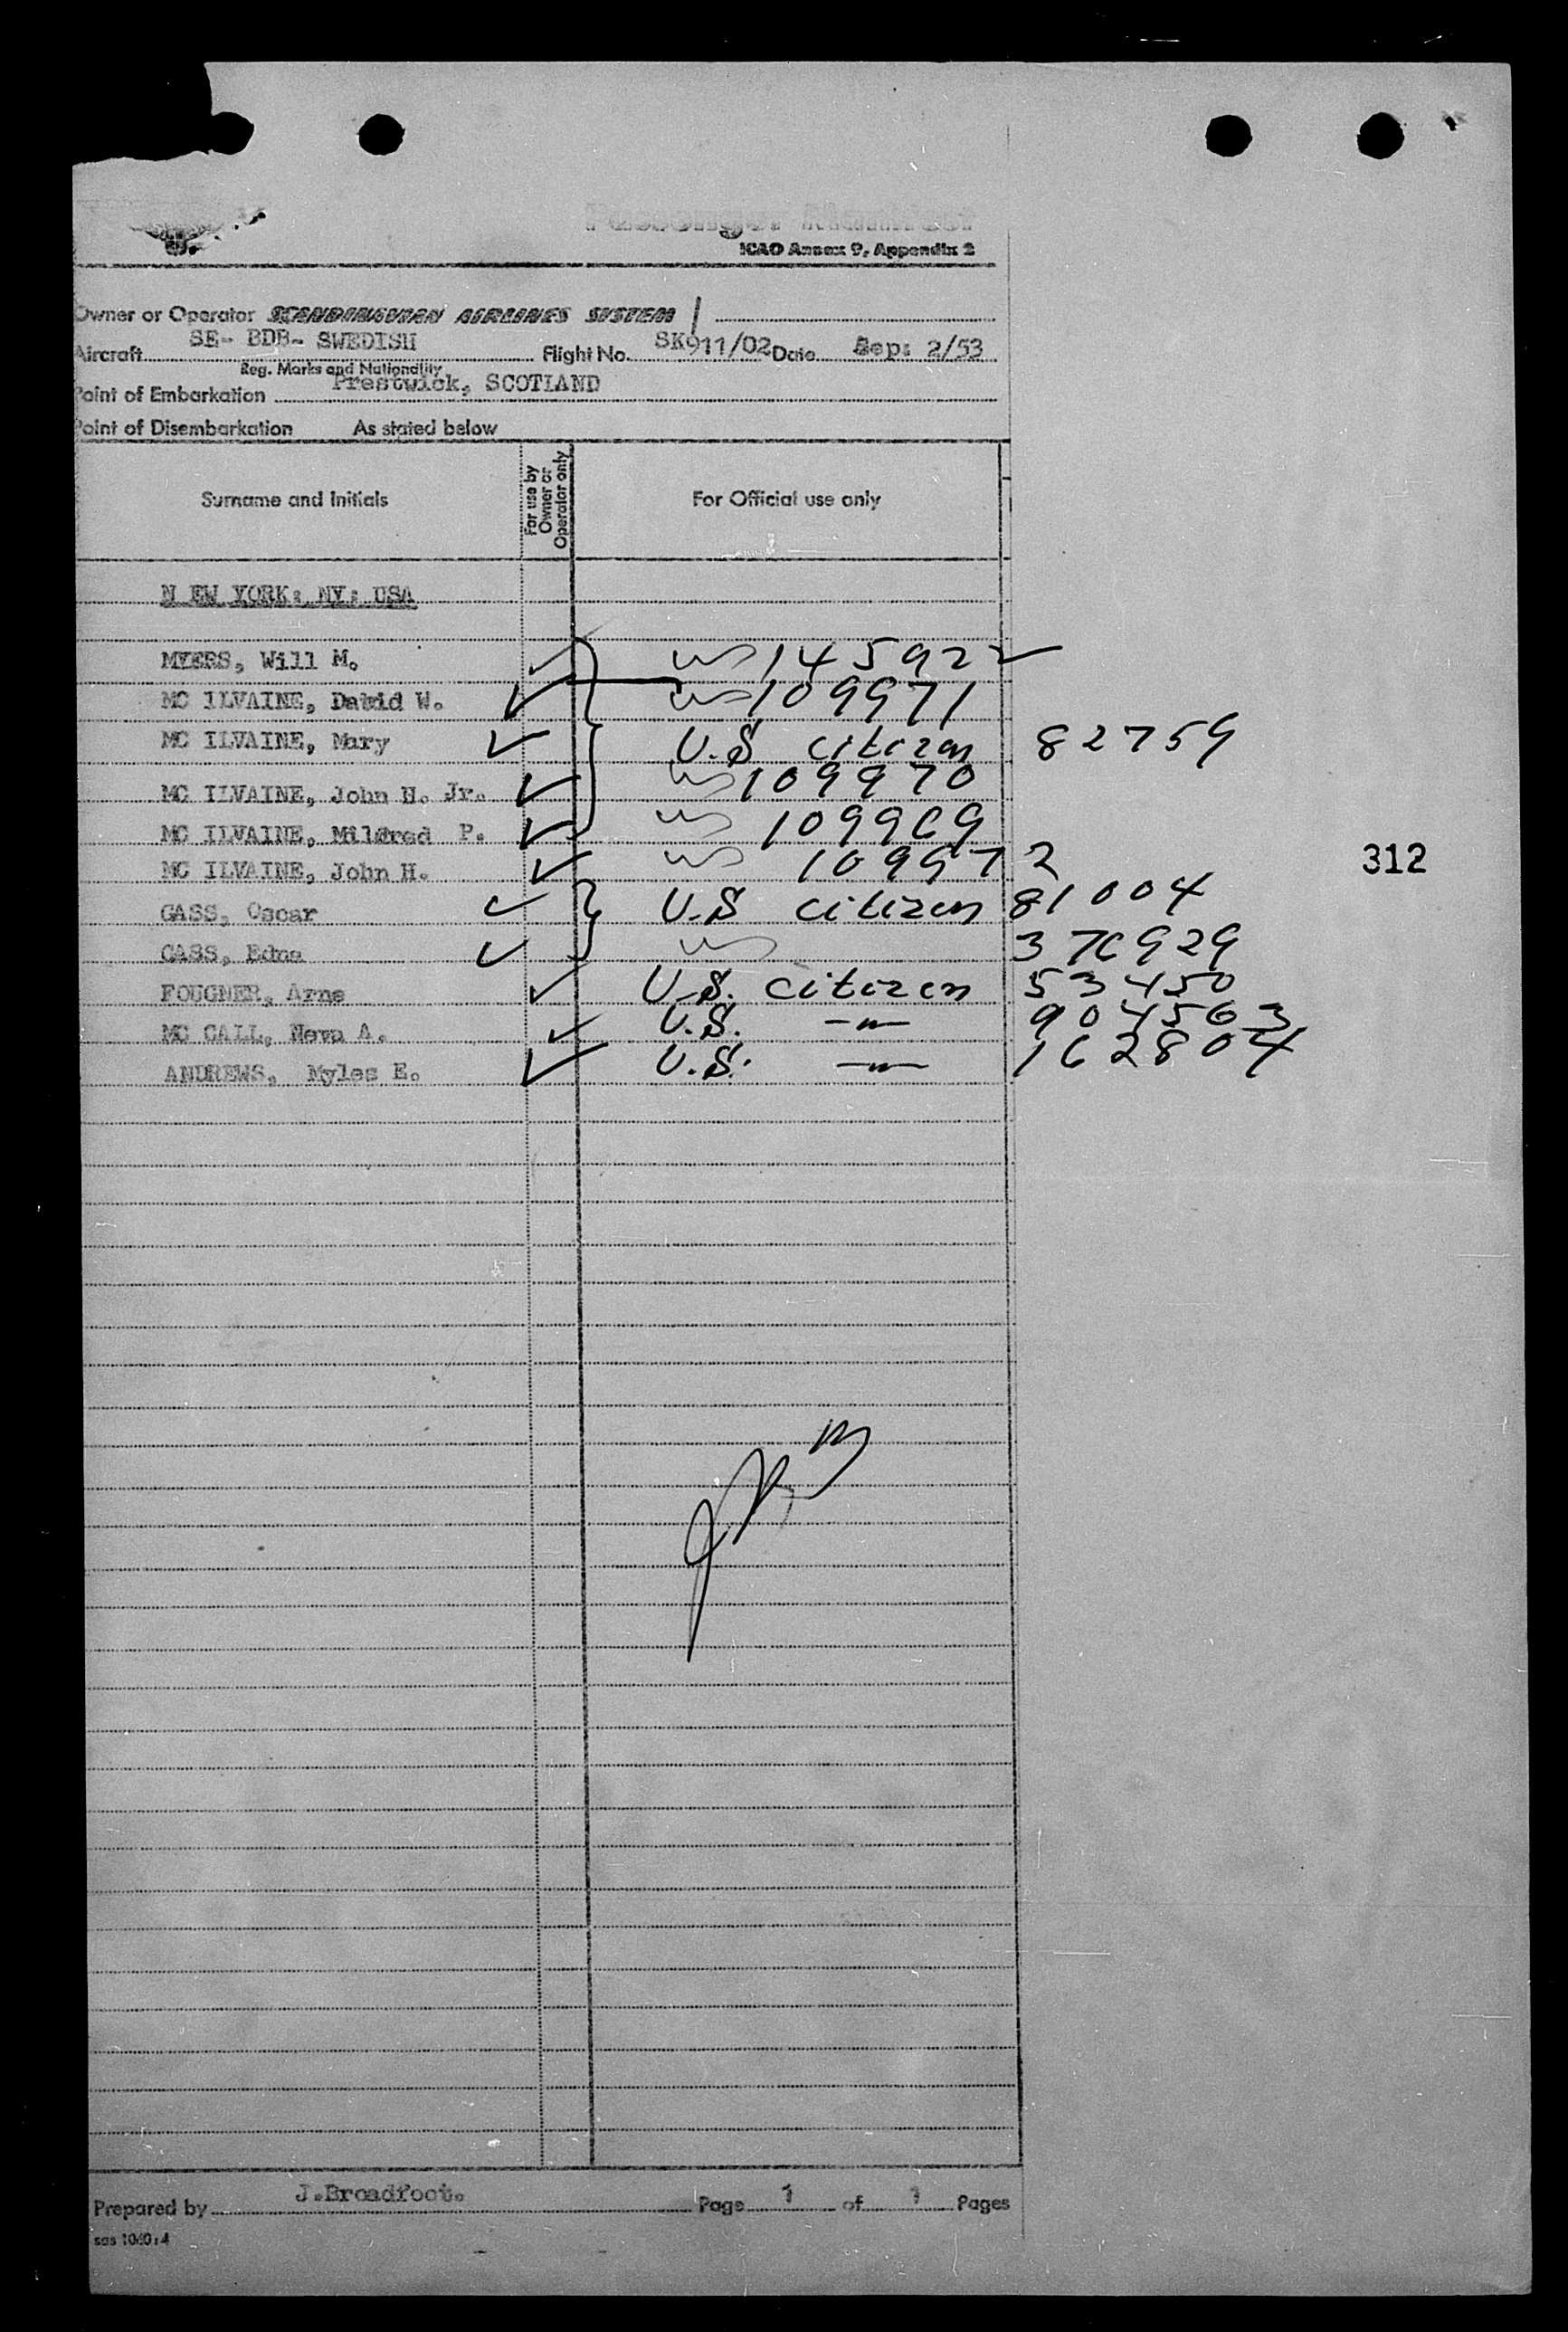 Passenger Manifest
ICAO Annex 9, Appendix 2
Owner or Operator SCANDINAVIAN AIRLINES SYSTEM
Aircraft SE- BDB- SWEDISH Flight No. SK911/02 Date Sep: 2/53
Reg. Marks and Nationality
Point of Embarkation Prestwick, SCOTLAND
Point of Disembarkation As stated below
Surname and Initials For use by Owner or Operator only For Official use only
N EW YORK: NY: USA
MYERS, Will M. 145922
MC ILVAINE, David W. 109971
MC ILVAINE, Mary U.S citizen 82759
MC ILVAINE, John H. Jr. 109970
MC ILVAINE, Mildred P. 109969
MC ILVAINE, John H. 109972
312
GASS, Oscar U.S citizen 81004
GASS, Edna 376929
FOUGNER, Arne U.S. citizen 53450
MC CALL, Neva A. U.S. -"- 904563
ANDREWS, Myles E. U.S. -"- 162804
Prepared by J.Broadfoot. Page 1 of 1 Pages
sas 1040:4